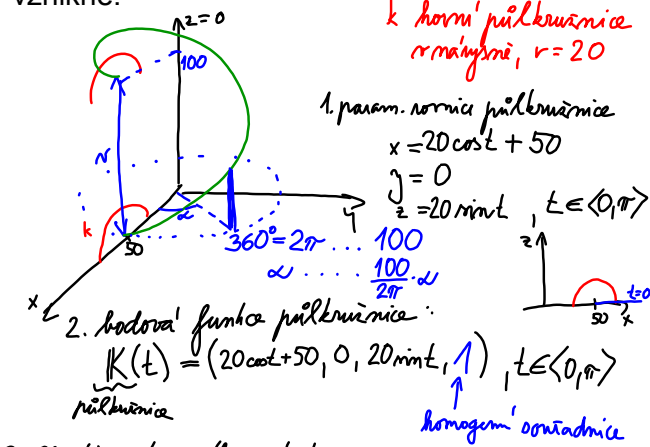 vznikne.
z=0
k horní půlkružnice
v nárysně, r = 20
100
1. param. rovnice půlkružnice
x = 20 cos t + 50
y = 0
z = 20 sin t , t∈<0,π>
v
α
y
k
50
360° = 2π .... 100
α ..... 100/2π · α
z
t=0
50 x
x
2. bodová funkce půlkružnice :
K(t) = (20 cos t + 50, 0, 20 sin t, 1) , t∈<0,π>
půlkružnice
homogenní souřadnice